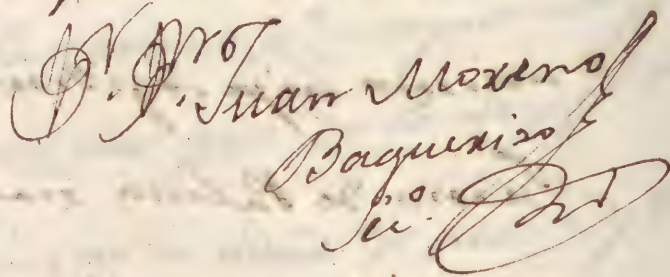 Dr. Dn. Juan Moreno
Baquerizo
Sri͞o.